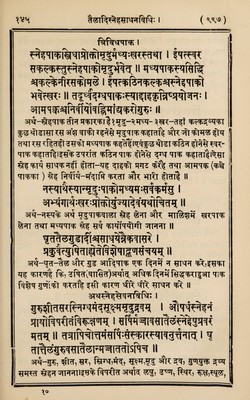 १४५ तैलादिस्नेहसाधनविधिः। (९९७)
त्रिविधपाक।
स्नेहपाकस्त्रिधाप्रोक्तोमृदुर्मध्यःखरस्तथा। ईषत्सर
सकल्कस्तुस्नेहपाकोमृदुर्भवेत्॥ मध्यपाकस्यसिद्धि
श्चकल्केनीरसकोमले। ईषत्कठिनकल्कश्चस्नेहपाको
भवेत्खरः॥ तदूर्ध्वंदग्धपाकःस्याद्दाहकृन्निष्प्रयोजनः।
आमपाकश्चनिर्वीर्योवह्निमांद्यकरोगुरुः॥
अर्थ-स्नेहपाक तीन प्रकारका है। मृदु-२मध्य-३खर-तहां कल्कद्रव्यका
कुछ थोडासा रस अंश पाकी रहनेसे मृदुपाक कहाताहै और जो कोमल होय
तथा रस रहितहो उसको मध्यपाक कहतेहैं। एवं कुछ थोडा कठिन होनेसे खर
पाक कहाताहै। इसके उपरांत कठिन पाक होनेसे दग्ध पाक कहाताहै। ऐसा
स्नेह कार्य साधक नहीं होता। यह दाहको प्रगट करेहै तथा आमपाक (कच्चे
पाकका) स्नेह-मंदाग्नि करता और भारी होताहै॥
नस्यार्थंस्यान्मृदुःपाकोमध्यमःसर्वकर्मसु।
अभ्यंगार्थेखरःप्रोक्तोयुंज्यादेवंयथोचितम्॥
अर्थ-नस्यके अर्थ मृदुपाकवाला स्नेह लेना और मालिशमें खरपाक
लेना तथा मध्यपाक स्नेह सर्व कार्योंपयोगी जानना॥
घृततैलगुडादींश्चसाधयेन्नैकवासरे।
प्रकुर्वंत्युषिताह्येतेविशेषाद्गुणसंचयम्॥
अर्थ-घृत, तेल और गुड आदिपाक एक दिनमें न साधन करे; इसका
यह कारणहै कि; उषित(बासित)अर्थात् अधिक दिनमें सिद्धकराहुआ पाक
विशेष गुणोंको करताहै इसी कारण धीरे धीरे साधन करे॥
अथस्नेहसेवनविधिः।
गुरुशीतसरस्निग्धमंदसूक्ष्ममृदुद्रवम्। औषधंस्नेहनं
प्रायोविपरीतंविरूक्षणम्। सर्पिर्मज्जावसातैलंस्नेहेषुप्रवरं
मतम्॥ तत्रापिचोत्तमंसर्पिःसंस्कारस्यानुवर्त्तनात्। घृ
तात्तैलंगुरुवसातैलान्मज्जाततोऽपिच॥
अर्थ-गुरु, शीत, सर, स्निग्ध, मंद, सूक्ष्म, मृदु और द्रव, गुणयुक्त द्रव्य
समस्त स्नेहन जानना। इसके विपरीत अर्थात् लघु; उष्ण, स्थिर; रूक्ष, स्थूल,
१०